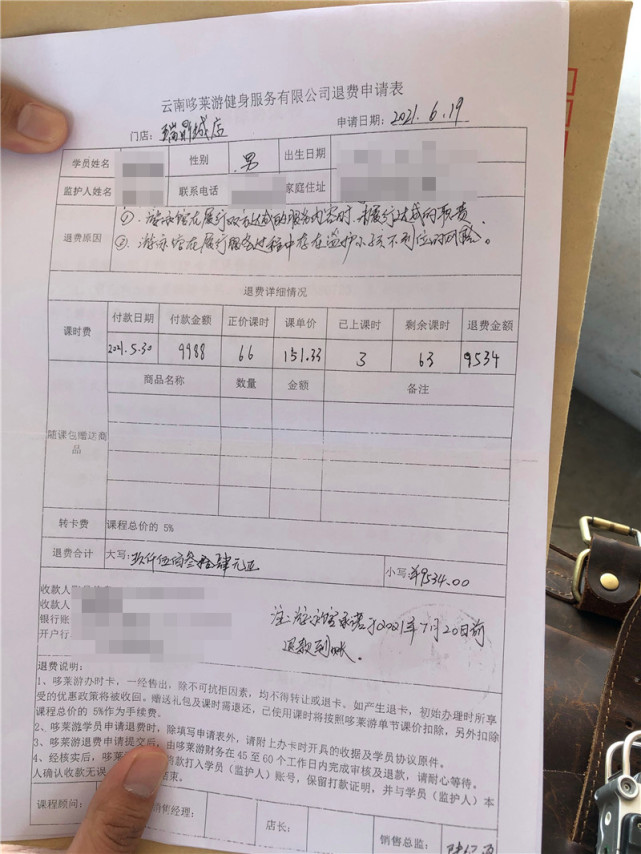 云南哆莱游健身服务有限公司退费申请表
门店: 瑞鼎城店 申请日期: 2021.6.19
学员姓名 性别 男 出生日期
监护人姓名 联系电话 家庭住址
退费原因
①、游泳馆在履行双方达成的服务内容时,未履行达成的职责。
②、游泳馆在履行服务过程中存在监护小孩不到位的风险。
退费详细情况
课时费 付款日期 付款金额 正价课时 课单价 已上课时 剩余课时 退费金额
2021.5.30 9988 66 151.33 3 63 9534
随课包赠送商品 商品名称 数量 金额 备注
转卡费 课程总价的 5%
退费合计 大写: 玖仟伍佰叁拾肆元正 小写: ¥9534.00
收款人
收款人
银行账
开户行
注: 游泳馆承诺于2021年7月20日前
退款到账。
退费说明:
1、哆莱游办时卡,一经售出,除不可抗拒因素,均不得转让或退卡。如产生退卡,初始办理时所享
受的优惠政策将被收回。赠送礼包及课时需退还,已使用课时将按照哆莱游单节课价扣除,另外扣除
课程总价的 5%作为手续费。
2、哆莱游学员申请退费时,除填写申请表外,请附上办卡时开具的收据及学员协议原件。
3、哆莱游退费申请提交后,由哆莱游财务在 45 至 60 个工作日内完成审核及退款,请耐心等待。
4、经核实后,哆莱 款打入学员(监护人)账号,保留打款证明,并与学员(监护人)本
人确认收款无误 结束。
课程顾问: 销售经理: 店长: 销售总监: